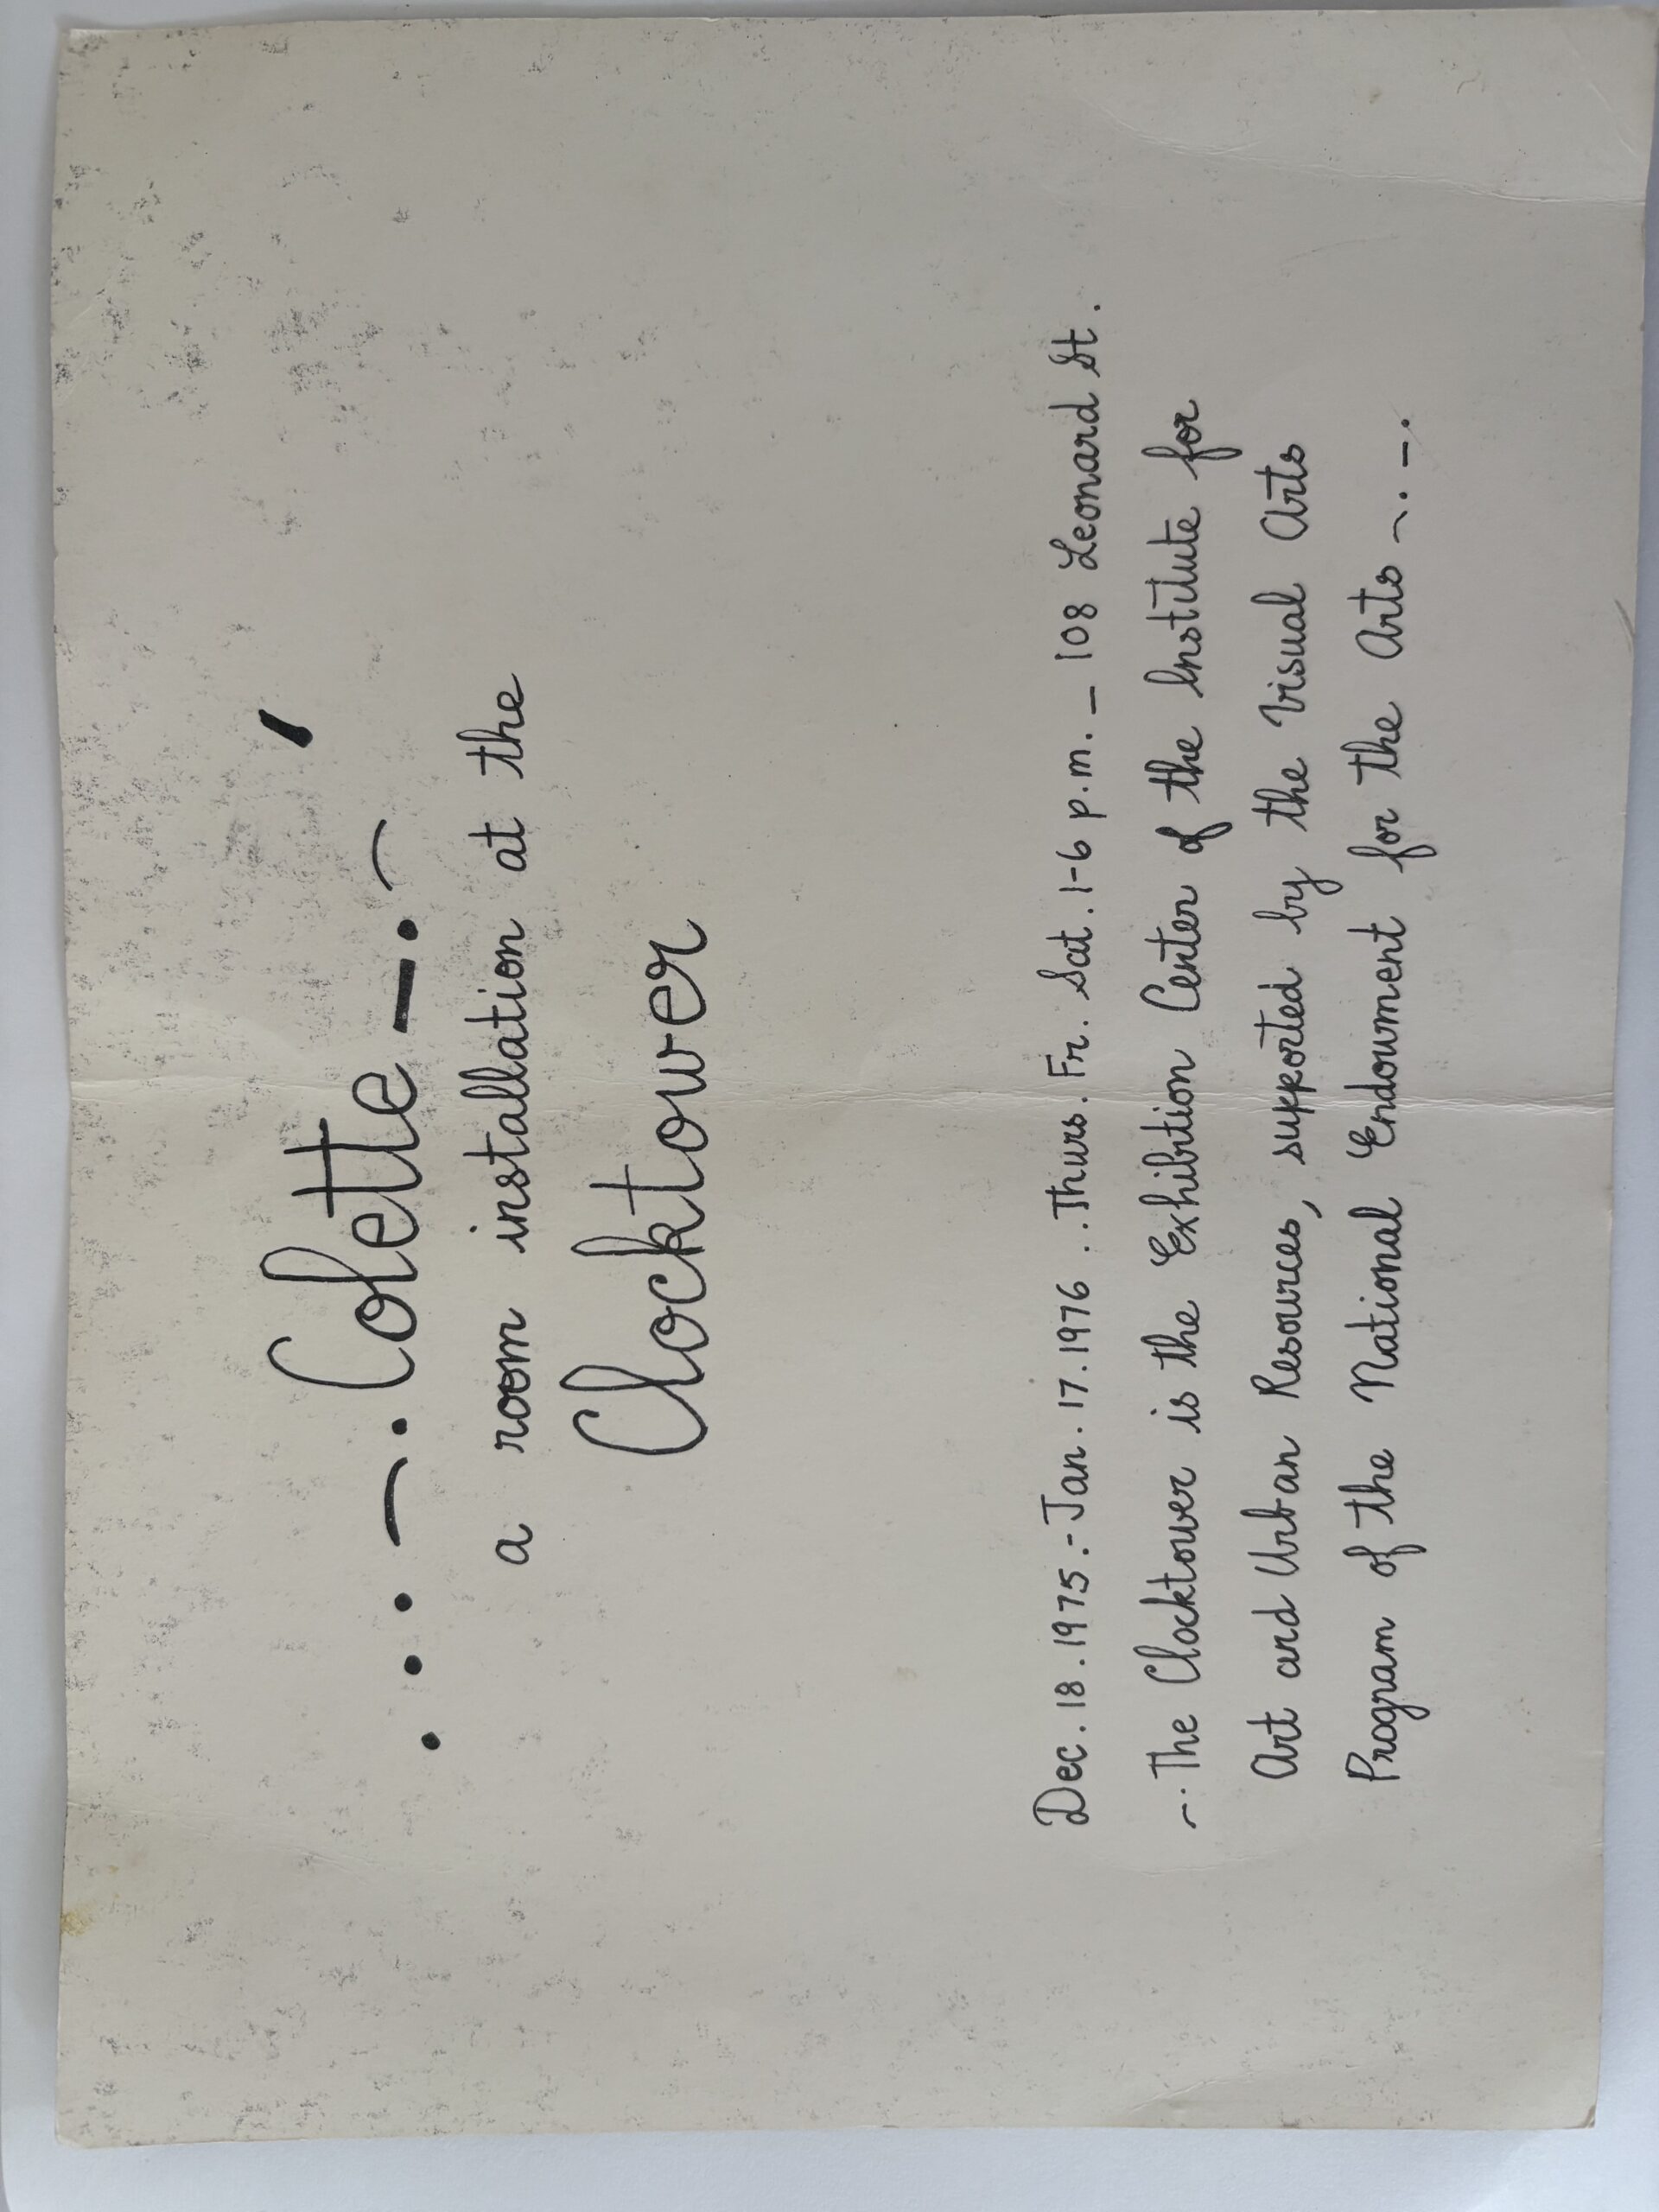 . . . ⁓ . Colette – . ⁓ ′
a room installation at the
Clocktower
Dec. 18 . 1975 .- Jan . 17 . 1976 . . Thurs . Fr. Sat . 1-6 p.m. – 108 Leonard St .
~ . The Clocktower is the Exhibition Center of the Institute for
Art and Urban Resources, supported by the Visual Arts
Program of the National Endowment for the Arts ~ . – .